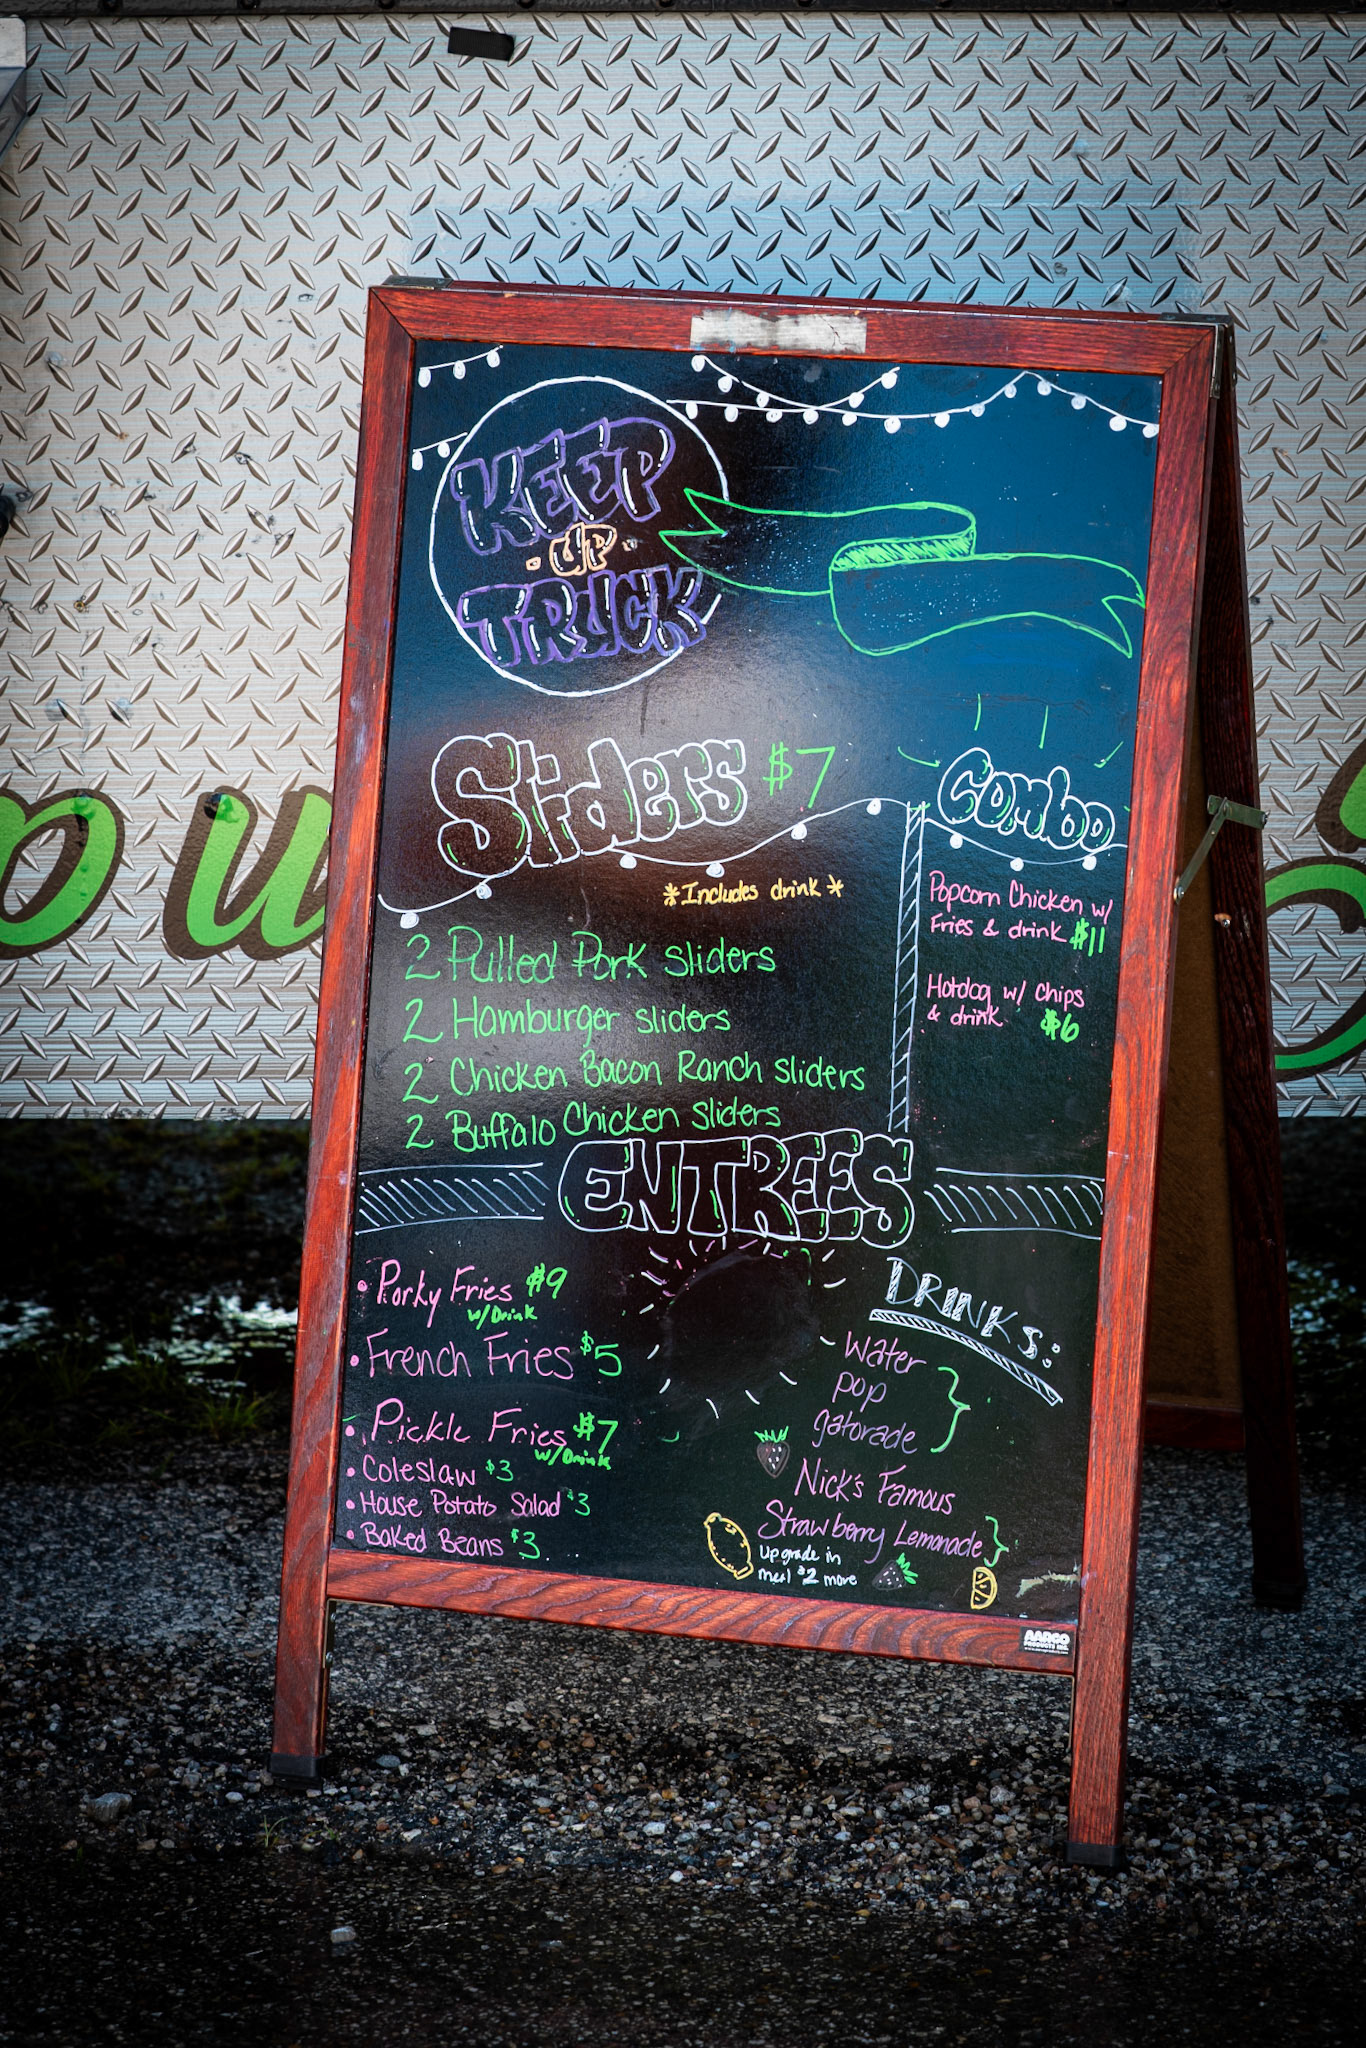 KEEP
·UP·
TRUCK
Sliders $7
*Includes drink*
2 Pulled Pork sliders
2 Hamburger sliders
2 Chicken Bacon Ranch sliders
2 Buffalo Chicken sliders
Combo
Popcorn Chicken w/
Fries & drink $11
Hotdog w/ chips
& drink $6
ENTREES
• Porky Fries $9
w/Drink
• French Fries $5
• Pickle Fries $7
w/Drink
• Coleslaw $3
• House Potato Salad $3
• Baked Beans $3
DRINKS:
Water
pop
gatorade
Nick's Famous
Strawberry Lemonade
upgrade in
meal $2 more
AARCO
PRODUCTS INC.
p u